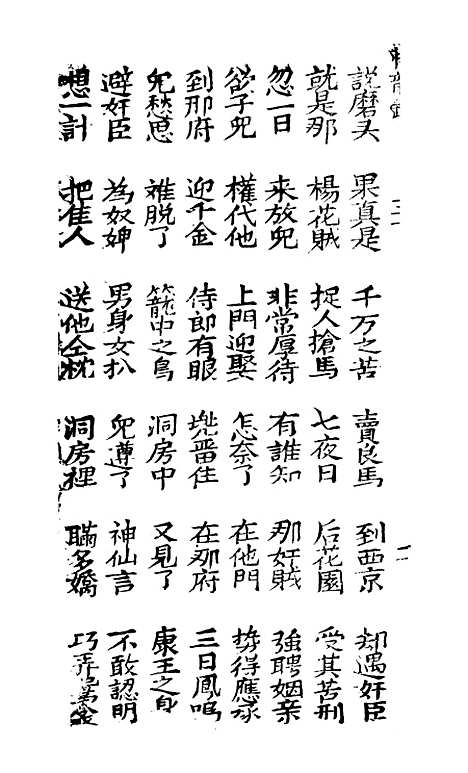 說磨夫 果真是 千万之苦 賣良馬 到西京 却遇奸臣
就是那 楊花賊 捉人搶馬 七夜日 后花園 受其苦刑
忽一日 来放児 非常厚待 有誰知 那奸賊 強聘姻亲
欲子児 權代他 上門迎娶 怎奈了 在他門 得應承
到那府 迎千金 侍郎有眼 留住 在那府 三日鳳鳴
児愁思 难脱了 籠中之鳥 洞房中 又見了 康王之身
避奸臣 為奴婢 男身女扒 児遵了 神仙言 不敢認明
想一計 把佳人 送他仝枕 洞房裡 瞞多嬌 巧弄